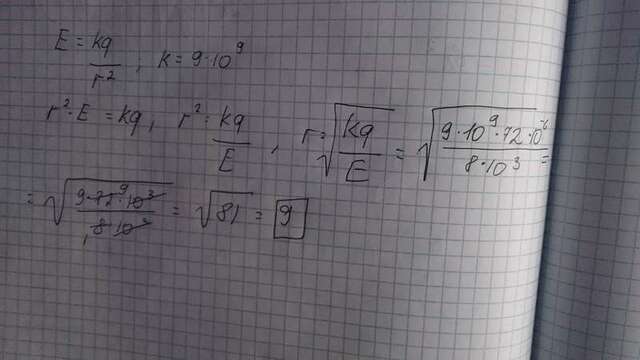 E = kq/r², k = 9·10⁹
r²·E = kq, r² = kq/E, r = √(kq/E) = √(9·10⁹·72·10⁻⁶/8·10³) =
= √(9·72·10³/8·10³) = √81 = 9